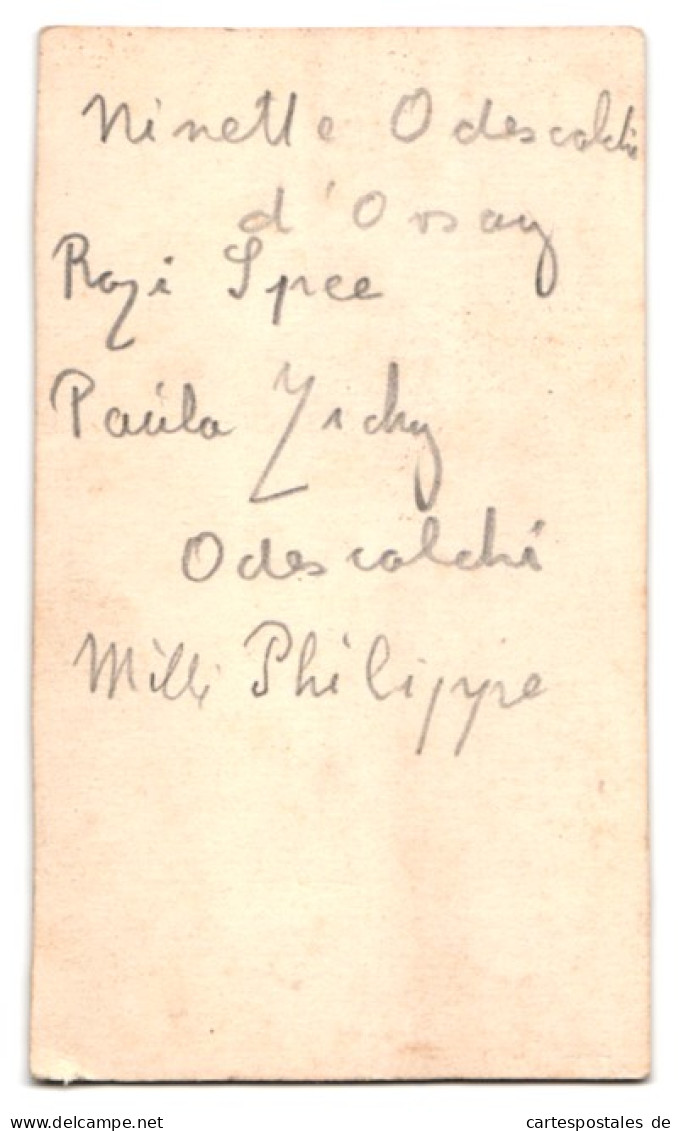 Ninette Odescalchi
d'Orsay
Rozi Spee
Paula Zichy
Odescalchi
Milli Philippe
www.delcampe.net cartespostales de